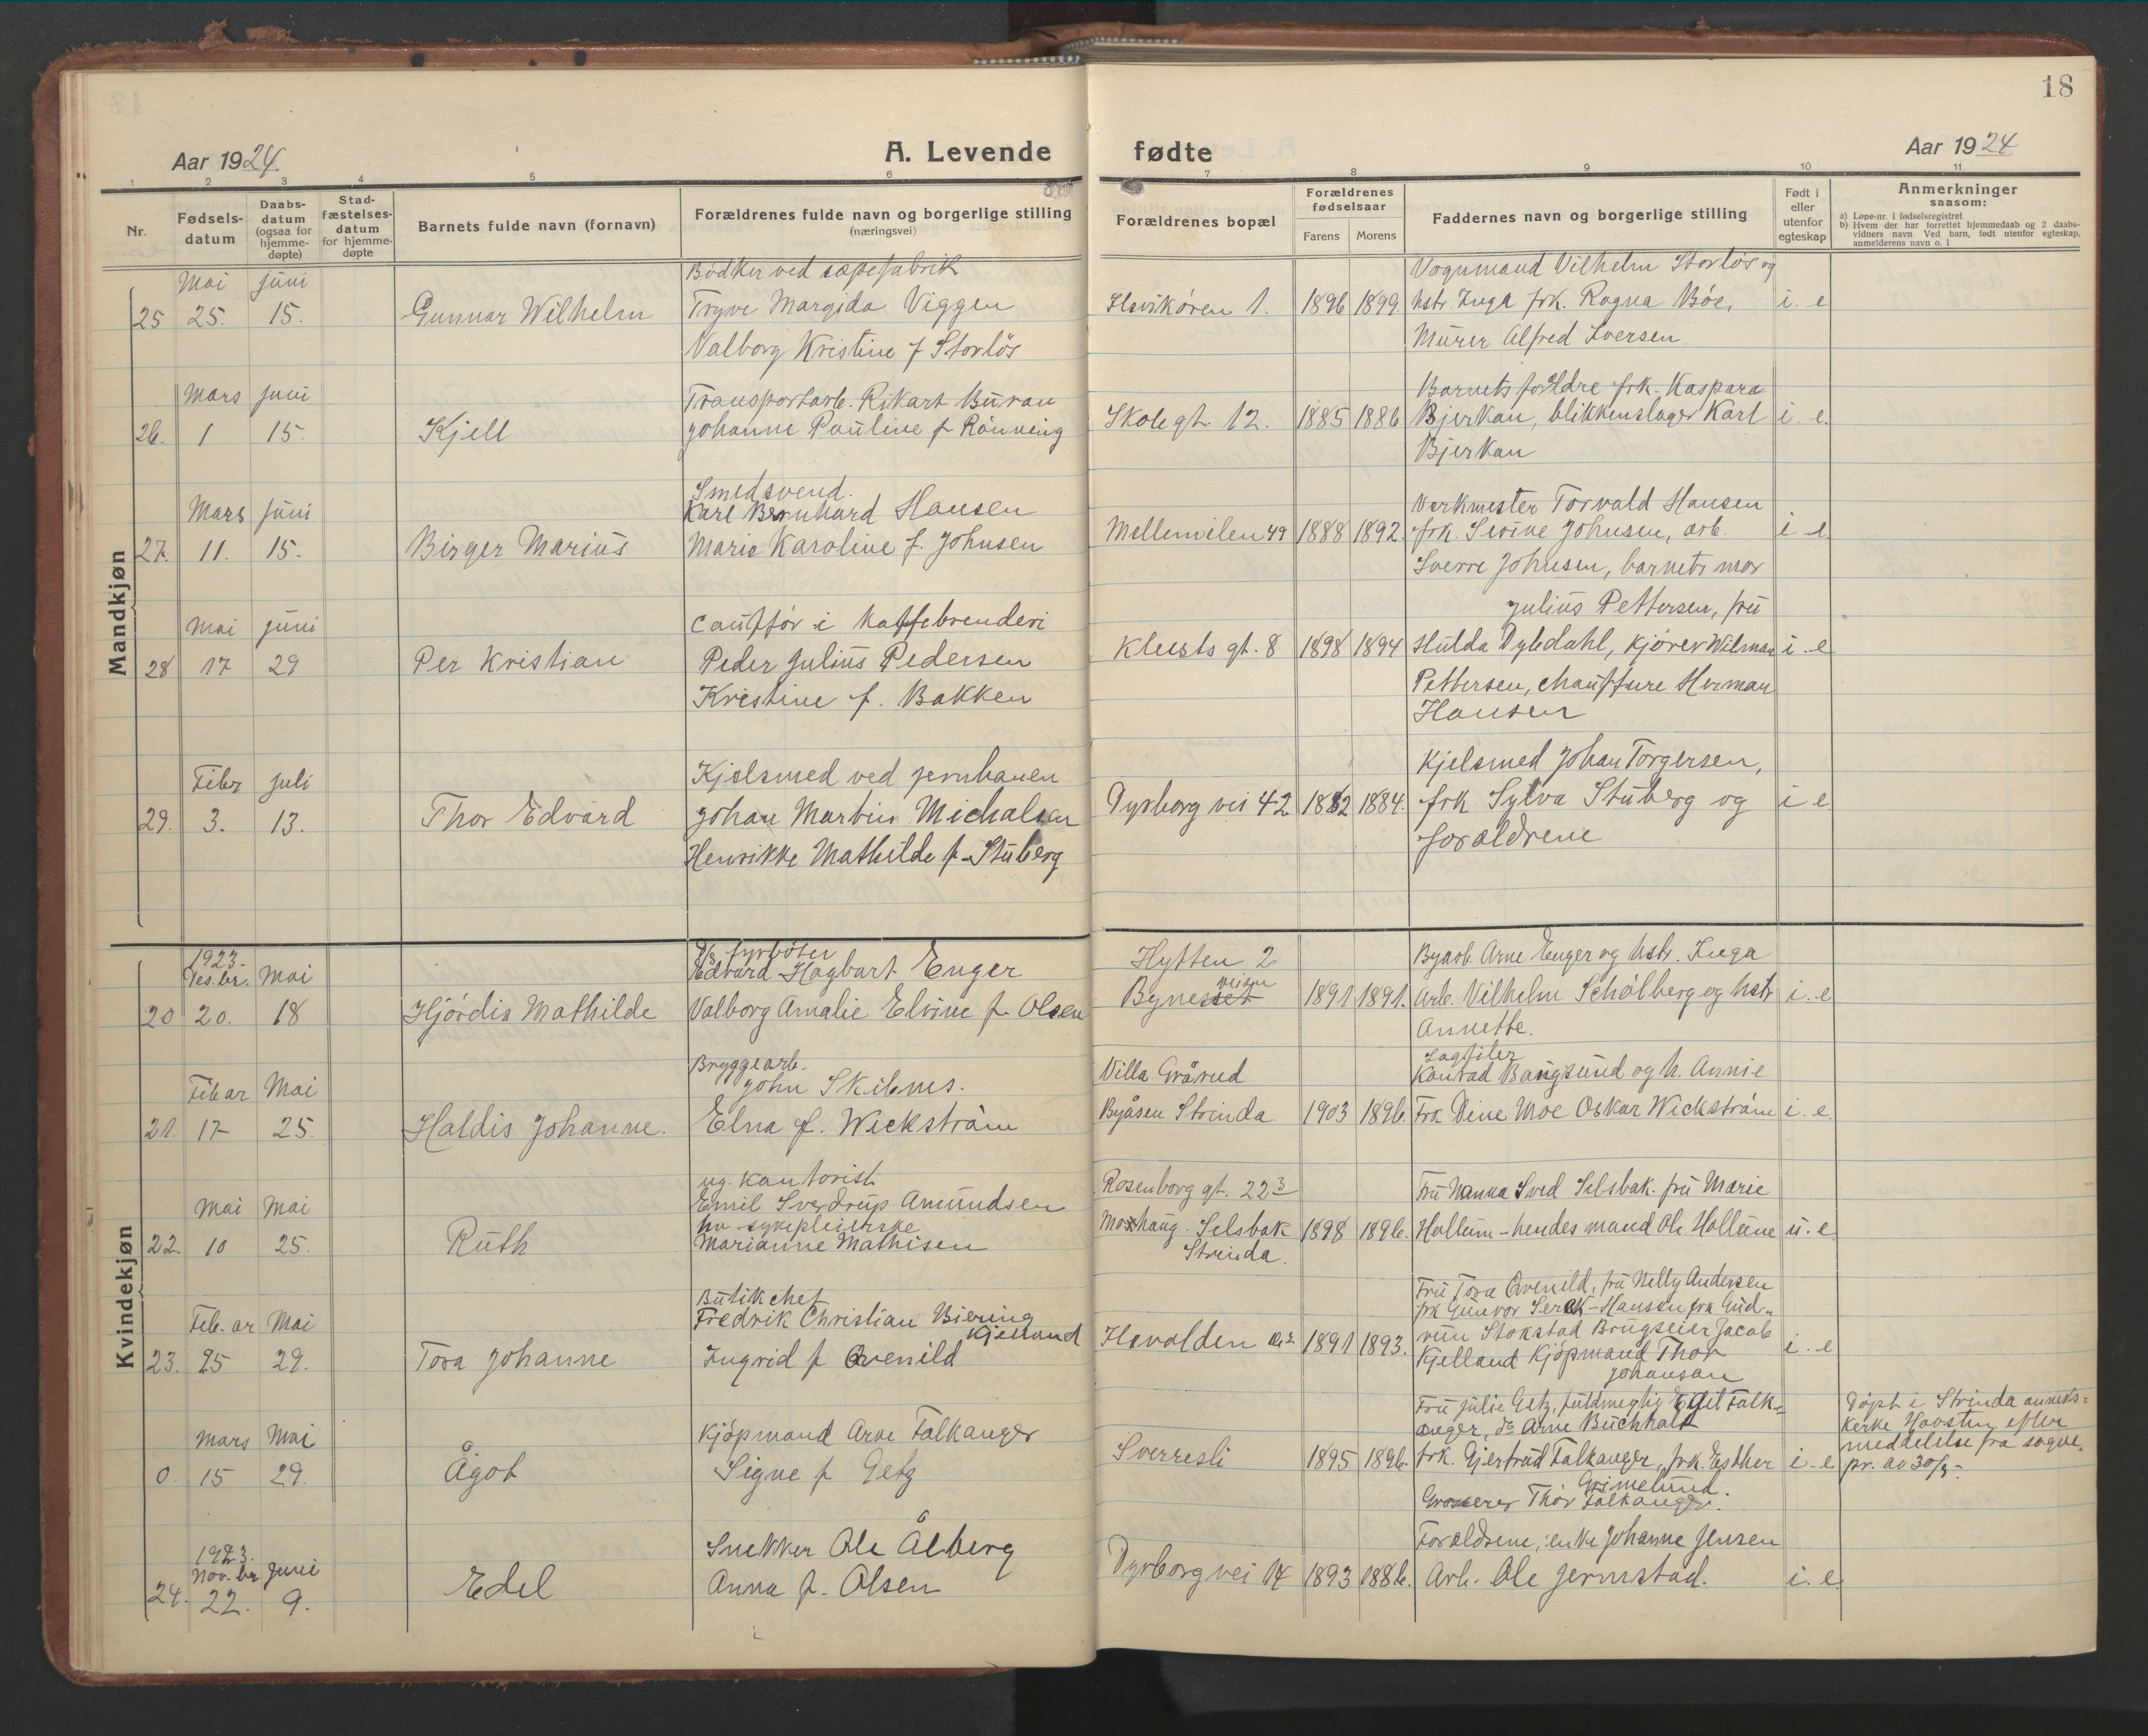 18
Aar 1924.
A. Levende
fødte
Aar 1924
1 2 3 4 5 6 7 8 9 10 11
Nr.
Fødsels-datum
Daabs-datum (ogsaa for hjemme-døpte)
Stad-fæstelses-datum for hjemme-døpte
Barnets fulde navn (fornavn)
Forældrenes fulde navn og borgerlige stilling (næringsvei)
Forældrenes bopæl
Forældrenes fødselsaar
Farens Morens
Faddernes navn og borgerlige stilling
Født i eller utenfor egteskap
Anmerkninger saasom:
a) Løpe-nr. i fødselsregistret
b) Hvem der har forrettet hjemmedaab og 2 daabs-vidners navn Ved barn, født utenfor egteskap, anmelderens navn o. l
Mandkjøn
25 Mai 25. Juni 15.
Gunnar Wilhelm
Bødker ved sæpefabrik
Trygve Margido Viggen
Valborg Kristine f Storløs
Ilevikøren 1. 1896 1899
Vognmand Vilhelm Storløs og
hstr. Inga frk. Ragna Bøe,
Murer Alfred Iversen.
i. e
26. Mars 1 Juni 15.
Kjell
Transportarb. Rikart Buran
Johanne Pauline f Rønning
Skolegt. 12. 1885 1886
Barnets forældre frk. Kaspara
Bjerkan, blikkenslager Karl
Bjerkan
i. e.
27. Mars 11. Juni 15.
Birger Marius
Smedsvend.
Karl Bernhard Hansen
Marie Karoline f. Johnsen
Mellemilen 49 1888 1892.
Verkmester Torvald Hansen
frk. Sevine Johnsen, arb.
Sverre Johnsen, barnets mor
i e.
28 Mai 17 Juni 29
Per Kristian
Cauffør i Kaffebrenderi
Peder Julius Pedersen
Kristine f. Bakken
gt. 8 1898 1894
Julius Pettersen, fru
Hulda Dybdahl, kjører Wilman
Pettersen, chauffure Herman
Hansen
i. e
29. Febr 3. Juli 13.
Thor Edvard
Kjelsmed ved jernbanen
Johan Martin Michalsen
Henrikke Mathilde f. Stuberg
Dyrborg vei 42 1882 1884.
Kjelsmed Johan Torgersen,
frk Sylva Stuberg og
foraldrene
i e.
Kvindekjøn
20 1923. Des.br. 20. Mai 18
Hjördis Mathilde
D/s fyrbøter
Edvard Hagbart Enger
Valborg Amalie Elvine f. Olsen
Hytten 2
Bynesveien 1891 1891.
Byarb. Arne Enger og hstr. Inga
Arb. Vilhelm Schølberg og hstr
Annette.
i. e
21. Febar 17 Mai 25.
Haldis Johanne.
Bryggearb.
John Skibnes.
Elna f. Wickström
Villa Grårud
Byåsen Strinda 1903 1896.
Sagfiler
Konrad Bangsund og h. Annie
Frk Dine Moe Oskar Wickström
i. e.
22. Mai 10 Mai 25.
Ruth
ug. kontorist
Emil Sverdrup Amundsen
hu - sykepleierske
Marianne Mathisen
Rosenborg gt. 22 3
Moxhaug - Selsbak
Strinda. 1898 1896.
Fru Nanna Sved Selsbak. fru Marie
Hollum - hendes mand Ole Hollum
u. e.
23. Feb. ar 25 Mai 29.
Tora Johanne
Butikchef
Fredrik Christian Biering
Kjelland
Ingrid f Qvenild
Hevolden 1891 1893.
Fru Tora Qvenild, fru Nelly Andersen
frk Gunvor Serck-Hansen frk Gud-
run Stokstad Brugseier Jacob
Kjelland Kjøpmand Thor
Johansan
i. e
0. Mars 15 Mai 29.
Ågot
Kjøpmand Arve Falkanger
Signe f Getz
Sverresli 1895 1896.
Fru Julie Getz, fuldmegtig Egil Falk-
anger, do Arne Buchholt
frk. Gjertrud Falkanger, frk. Esther
Grimelund.
Grosserer Thor Falkanger.
i - e
Døpt i Strinda anneks-
kerke Havstein efter
meddelelse fra sogne-
pr. av 30/5 -
24. 1923. Nov. br 22. Juni 9.
Edel
Snekker Ole Ålberg
Anna f. Olsen
Dyrborg vei 14 1893 1886.
Foraldrene, enke Johanne Jensen
Arb. Ole Jermstad.
i. e.